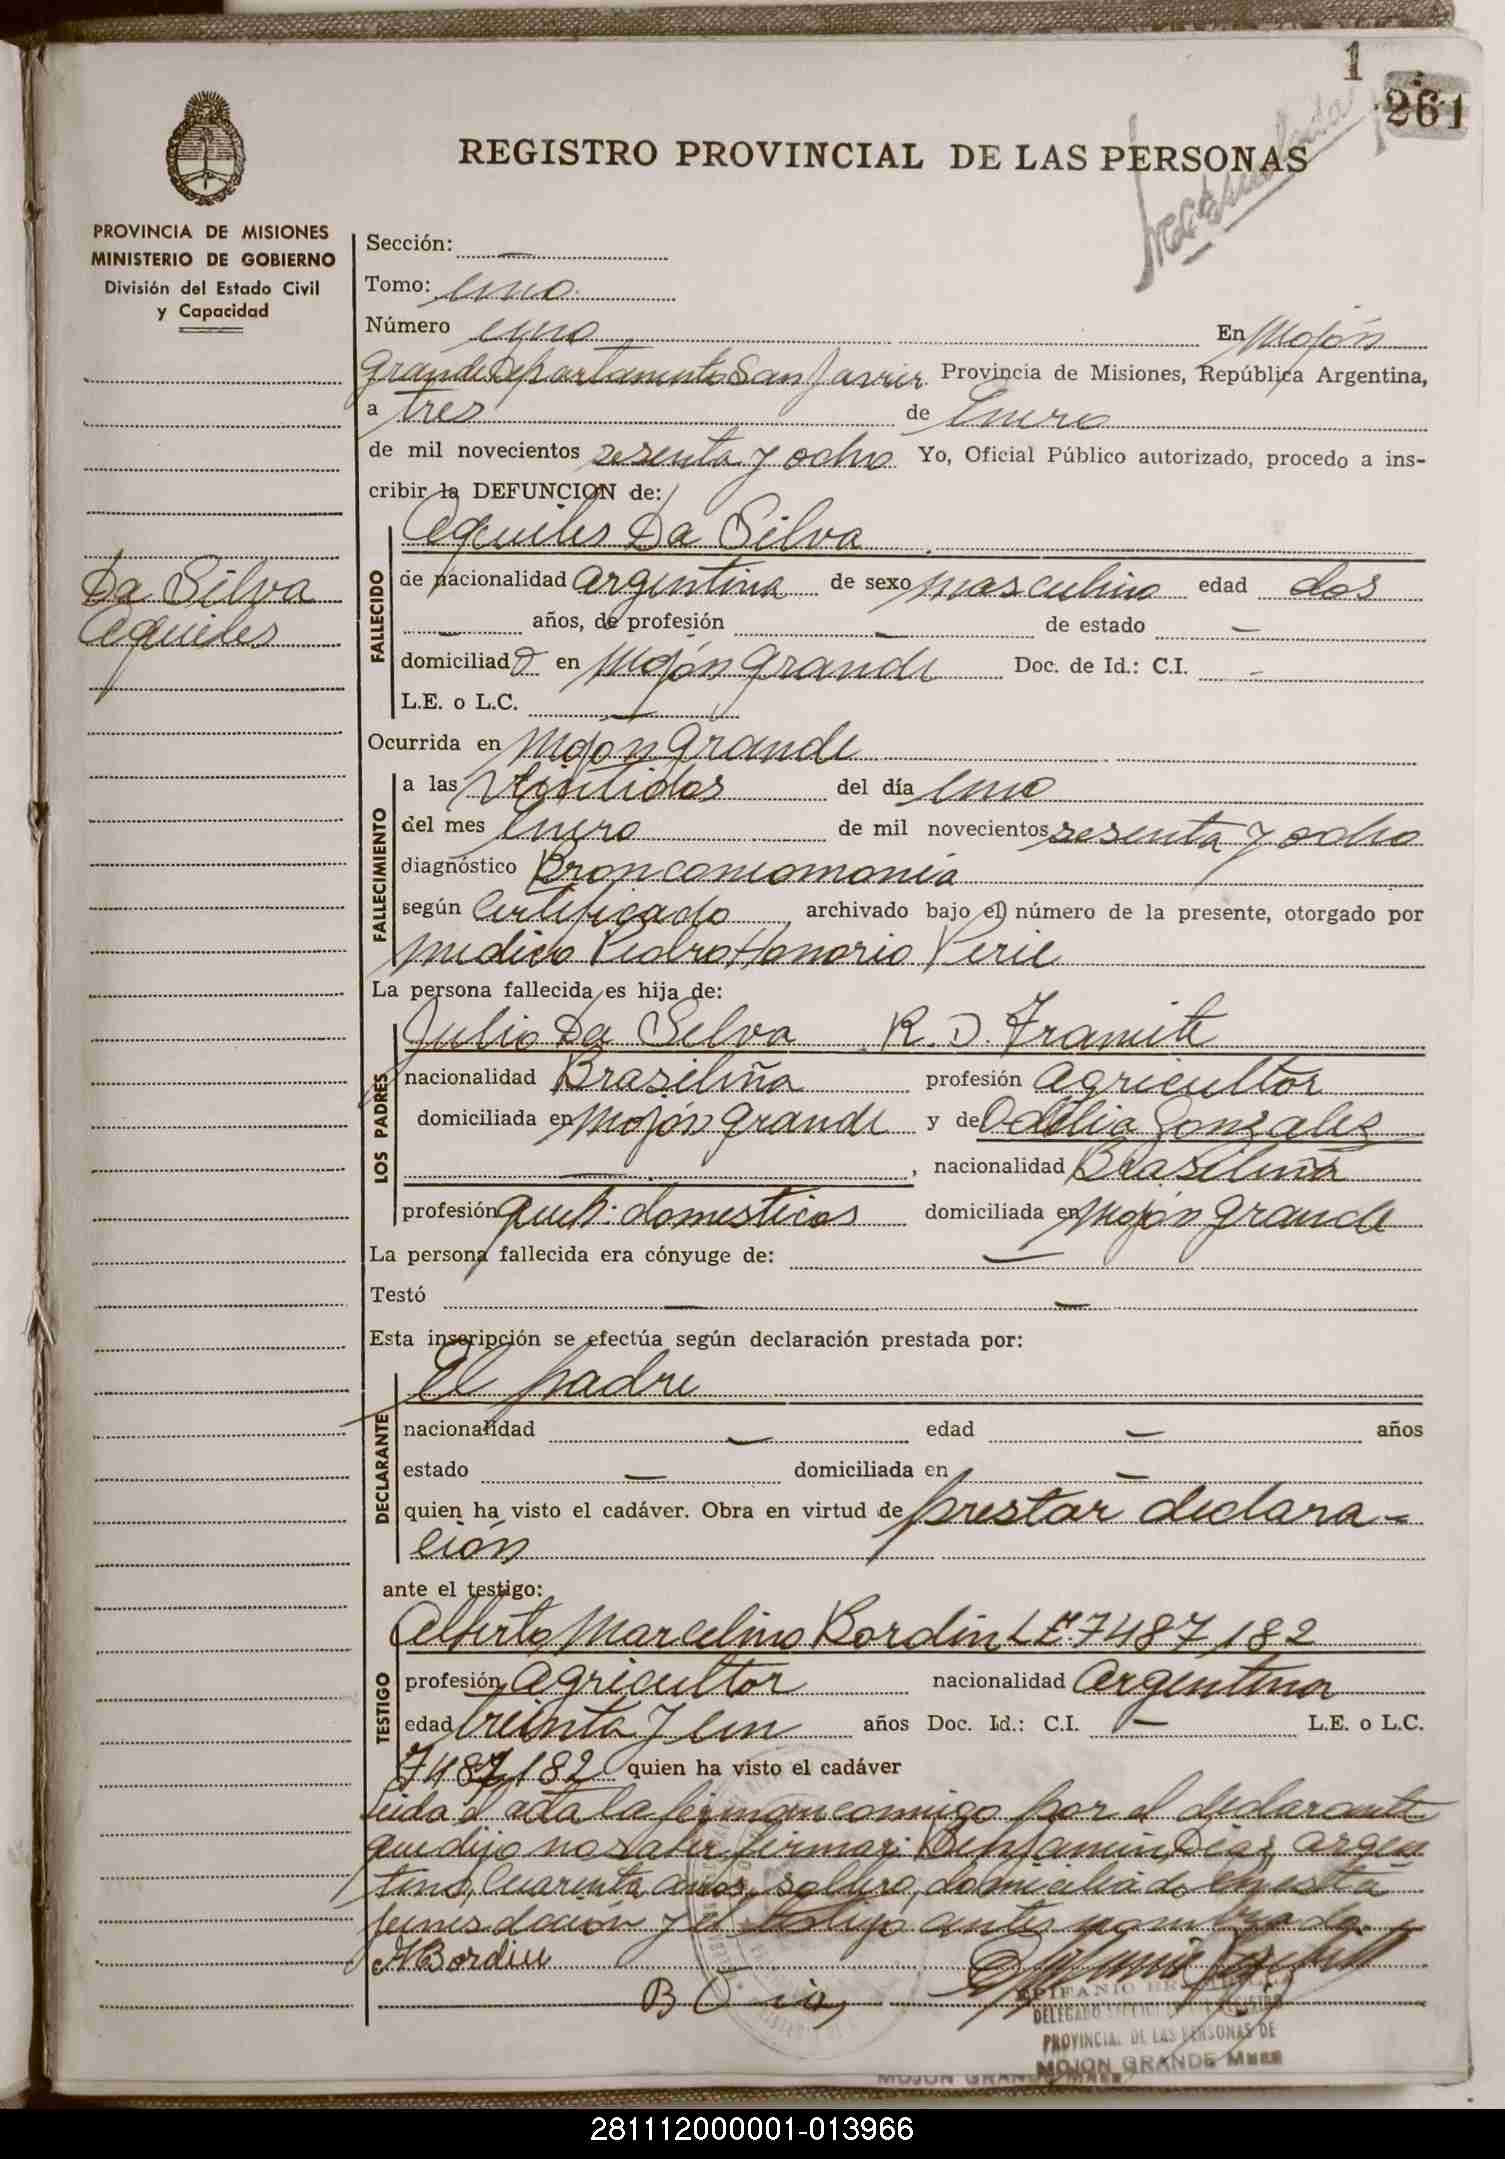 1
261
REGISTRO PROVINCIAL DE LAS PERSONAS
PROVINCIA DE MISIONES
MINISTERIO DE GOBIERNO
División del Estado Civil
y Capacidad
Sección: —
Tomo: uno
Número uno En Mojón
Grande Departamento San Javier Provincia de Misiones, República Argentina,
a tres de Enero
de mil novecientos sesenta y ocho Yo, Oficial Público autorizado, procedo a ins-
cribir la DEFUNCION de:
Aquiles Da Silva
Da Silva
Aquiles
FALLECIDO
de nacionalidad argentina de sexo masculino edad dos
— años, de profesión — de estado —
domiciliado en Mojón Grande Doc. de Id.: C.I. -
L.E. o L.C. —
Ocurrida en Mojón Grande
FALLECIMIENTO
a las Veintidos del día uno
del mes Enero de mil novecientos sesenta y ocho
diagnóstico Bronconeomonia
según Certificado archivado bajo el número de la presente, otorgado por
medico Pedro Honorio Perie
La persona fallecida es hija de:
LOS PADRES
Julio Da Silva R. D. Tramite
nacionalidad Brasileña profesión agricultor
domiciliada en Mojón Grande y de Odilia Gonzalez
—, nacionalidad Brasileña
profesión queh: domesticos domiciliada en Mojón Grande
La persona fallecida era cónyuge de: —
Testó — —
Esta inscripción se efectúa según declaración prestada por:
DECLARANTE
El padre
nacionalidad — edad — años
estado — domiciliada en —
quien ha visto el cadáver. Obra en virtud de prestar declara-
ción
ante el testigo:
TESTIGO
Alberto Marcelino Bordin L.E. 7487,182
profesión agricultor nacionalidad Argentina
edad treinta y un años Doc. Id.: C.I. — L.E. o L.C.
7487,182 quien ha visto el cadáver
Leida el acta la firman conmigo por el declarante
que dijo no saber firmar: Benjamin Diaz, argen
tino, Cuarenta años, soltero, domiciliado en esta
jurisdicción y el testigo antes nombrado.
A Bordin
EPIFANIO
DELEGADO
PROVINCIAL DE LAS PERSONAS DE
MOJON GRANDE Mnes
MOJON GRANDE Mnes
281112000001-013966